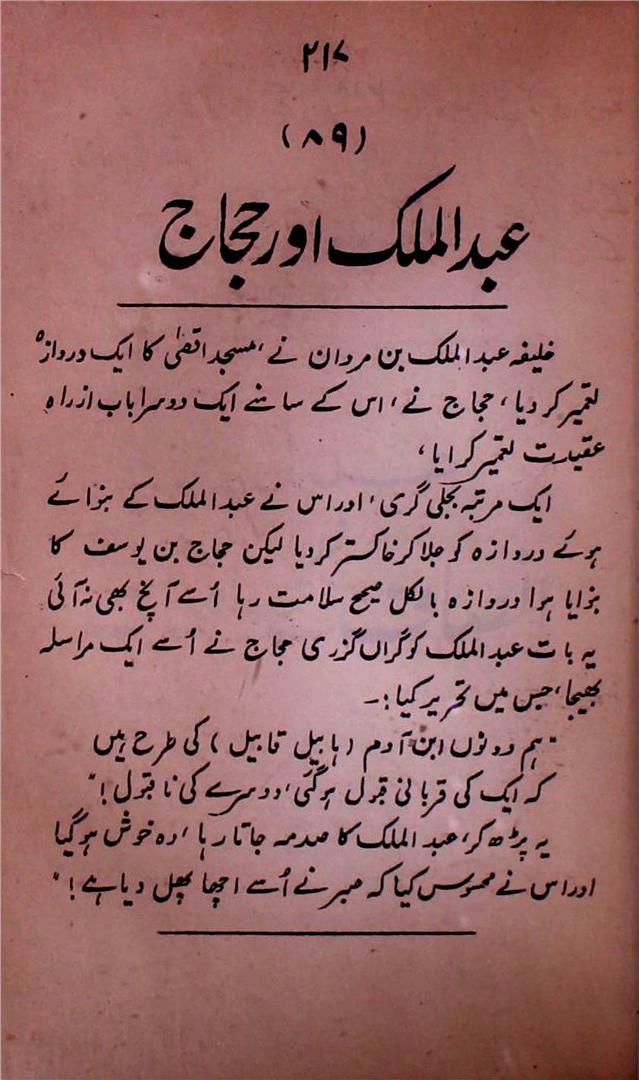 ۲۱۷
(۸۹)
عبدالملک اور حجاج
خلیفہ عبدالملک بن مروان نے، مسجد اقصٰی کا ایک دروازہ
تعمیر کر دیا، حجاج نے، اس کے سامنے ایک دوسرا باب ازراہ
عقیدت تعمیر کرایا،
ایک مرتبہ بجلی گری، اور اس نے عبدالملک کے بنوائے
ہوئے دروازہ کو جلا کر خاکستر کر دیا لیکن حجاج بن یوسف کا
بنوایا ہوا دروازہ بالکل صحیح سلامت رہا اُسے آنچ بھی نہ آئی
یہ بات عبدالملک کو گراں گزری حجاج نے اُسے ایک مراسلہ
بھیجا، جس میں تحریر کیا:۔
"ہم دونوں ابن آدم (ہابیل قابیل) کی طرح ہیں
کہ ایک کی قربانی قبول ہو گئی، دوسرے کی نا قبول!"
یہ پڑھ کر، عبدالملک کا صدمہ جاتا رہا، وہ خوش ہو گیا
اور اس نے محسوس کیا کہ صبر نے اُسے اچھا پھل دیا ہے!"